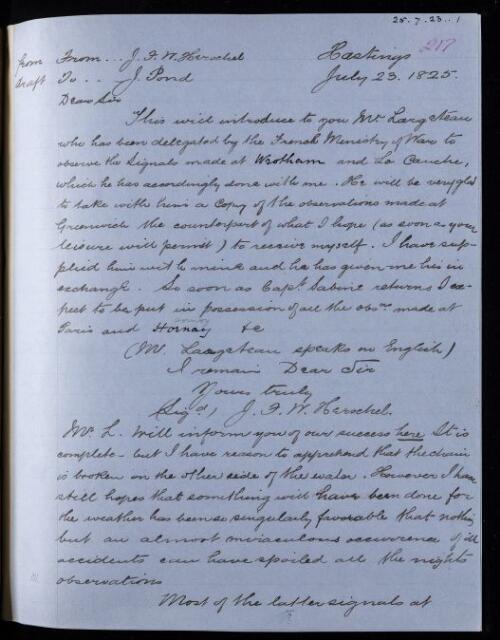 25.7.23..1
from From... J. F. W. Herschel Hastings 217
draft To... J. Pond July 23. 1825.
Dear Sir
This will introduce to you Mr. Largeteau
who has been delegated by the French Ministry of War to
observe the Signals made at Wrotham and La Canche,
which he has accordingly done with me. He will be very glad
to take with him a Copy of the observations made at
Greenwich the counterpart of what I hope (as soon as your
leisure will permit) to receive myself. I have sup-
plied him with mine and he has given me his in
exchange. So soon as Capt. Sabine returns I ex-
pect to be put in possession of all the obsns. made at
Paris and Hornay &c
(Mr. Largeteau speaks no English)
I remain Dear Sir
Yours truly
(Sigd) J. F. W. Herschel.
Mr. L. will inform you of our success here It is
complete - but I have reason to apprehend that the chain
is broken on the other side of the water. However I have
still hopes that something will have been done for
the weather has been so singularly favorable that nothing
but an almost miraculous occurrence of ill
accidents can have spoiled all the nights
observations
Most of the latter signals at